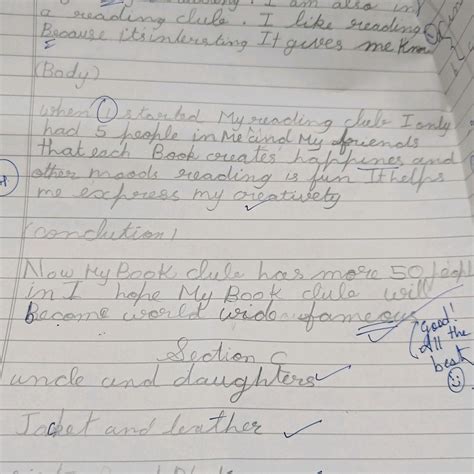 I am also in
a reading clule. I like reading
Because itsintersting It gives me Know
(Body)
when I started My reading clule I only
had 5 people in Me and My friends
that each Book creates happines and
other moods reading is fun It helps
me express my creativety
(conclution)
Now My Book clule has more 50 peopl
in I hope My Book clule will
Become world wide fameous
Good!
All the
best
Section C
uncle and daughters
Jacket and leather